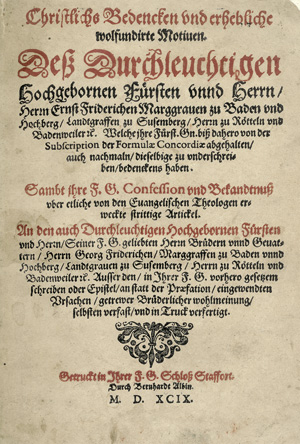 Christlichs Bedencken vnd erhebliche
wolfundirte Motiuen.
Deß Durchleuchtigen
Hochgebornen Fürsten vnnd Herrn/
Herrn Ernst Friderichen Marggrauen zu Baden vnd
Hochberg/ Landtgraffen zu Susemberg/ Herrn zu Rötteln vnd
Badenweiler ꝛc. Welche jhre Fürst. Gn. biß dahero von der
Subscription der Formulæ Concordiæ abgehalten/
auch nachmaln/ dieselbige zu vnderschrei-
ben/ bedenckens haben.
Sambt jhre F. G. Confession vnd Bekandtnuß
vber etliche von den Euangelischen Theologen er-
weckte strittige Artickel.
An den auch Durchleuchtigen Hochgebornen Fürsten
vnd Herrn/ Seiner F. G. geliebten Herrn Brüdern vnnd Geuat-
tern/ Herrn Georg Friderichen/ Marggraffen zu Baden vnnd
Hochberg/ Landtgrauen zu Susemberg/ Herrn zu Rötteln vnd
Badenweiler ꝛc. Ausser den/ in Jhrer F. G. vorhero gesetztem
schreiben oder Epistel/ an statt der Præfation/ eingewendten
Vrsachen/ getrewer Brüderlicher wohlmeinung/
selbsten verfast/ vnd in Truck verfertigt.
Getruckt in Jhrer F. G. Schloß Staffort.
Durch Bernhardt Albin.
M. D. XCIX.